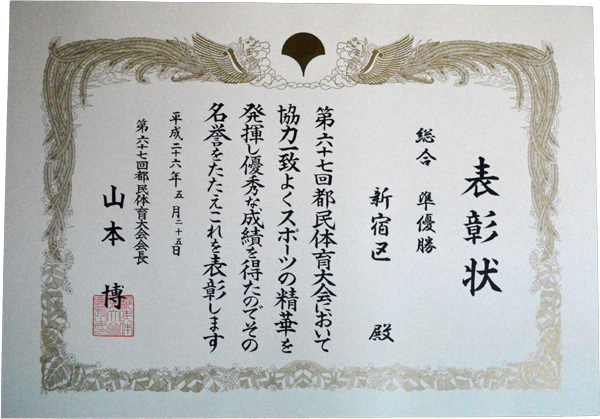 表彰状
総合 準優勝
新宿区 殿
第六十七回都民体育大会において
協力一致よくスポーツの精華を
発揮し優秀な成績を得たのでその
名誉をたたえこれを表彰します
平成二十六年五月二十五日
第六十七回都民体育大会会長
山本 博